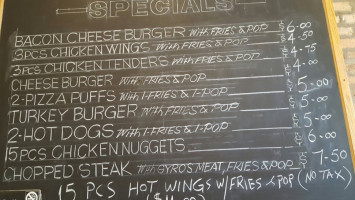 SPECIALS
BACON CHEESE BURGER WITH FRIES & POP $6.00
3PCS CHICKEN WINGS WITH FRIES & POP $4.50
3PCS CHICKEN TENDERS WITH FRIES & POP $4.75
CHEESE BURGER WITH FRIES & POP $4.00
2-PIZZA PUFFS WITH 1-FRIES & 1-POP $5.00
TURKEY BURGER WITH FRIES & POP $5.00
2-HOT DOGS WITH 1-FRIES & 1-POP $5.00
15 PCS. CHICKEN NUGGETS $6.00
CHOPPED STEAK WITH GYROS MEAT, FRIES & POP $7.50
15 PCS HOT WINGS W/FRIES & POP (NO TAX)